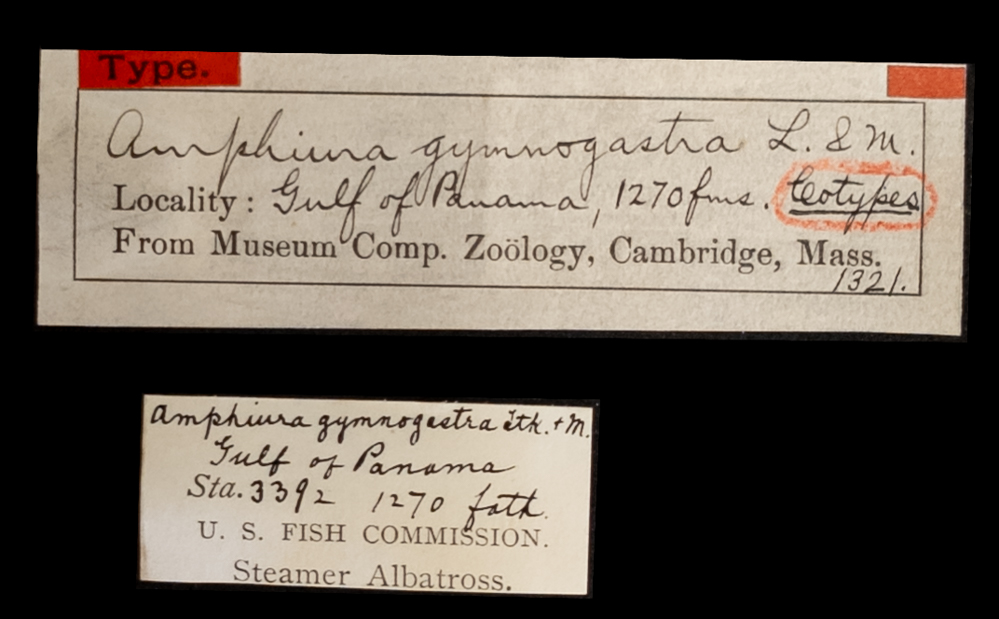 Type.
Amphiura gymnogastra L. & M.
Locality: Gulf of Panama, 1270 fms. Cotypes
From Museum Comp. Zoölogy, Cambridge, Mass.
1321.
Amphiura gymnogastra Ltk. + M.
Gulf of Panama
Sta. 3392 1270 fath.
U. S. FISH COMMISSION.
Steamer Albatross.